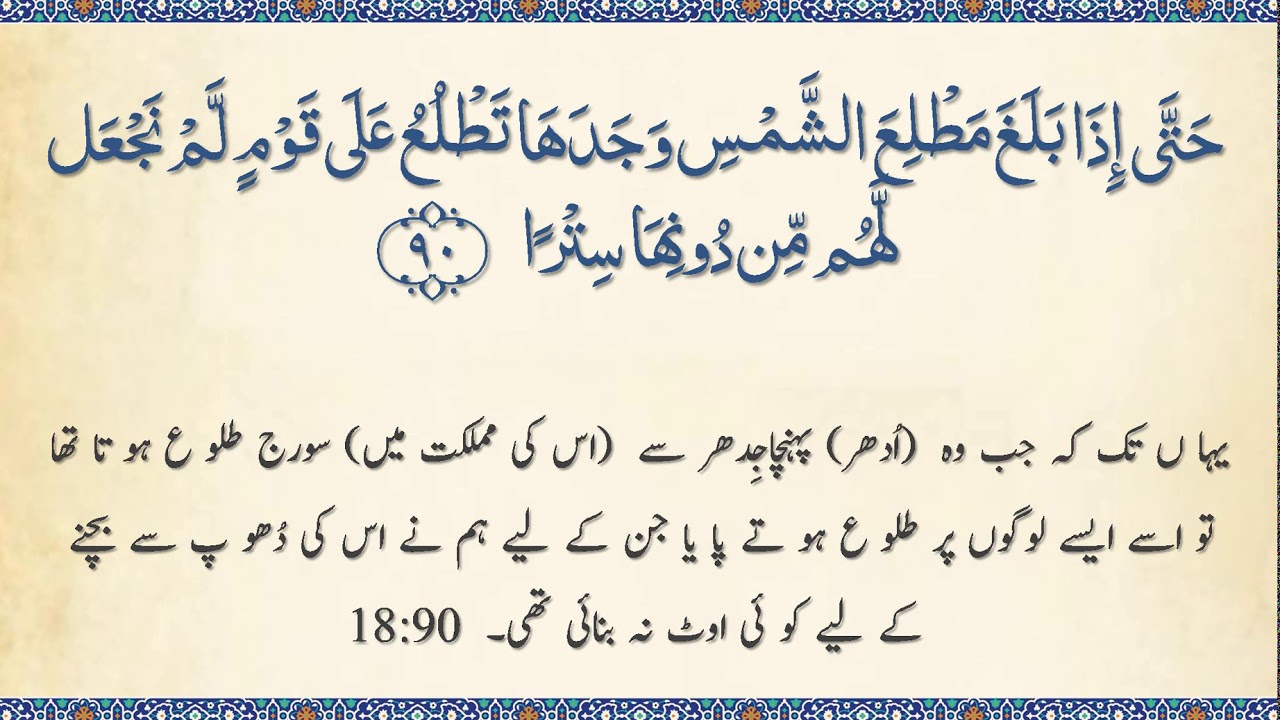 حَتَّى إِذَا بَلَغَ مَطْلِعَ الشَّمْسِ وَجَدَهَا تَطْلُعُ عَلَى قَوْمٍ لَّمْ نَجْعَل
لَّهُم مِّن دُونِهَا سِتْرًا ﴿٩٠﴾
یہا ں تک کہ جب وہ (اُدھر) پہنچاجِدھر سے (اس کی مملکت میں) سورج طلو ع ہو تا تھا
تو اسے ایسے لوگوں پر طلو ع ہو تے پا یا جن کے لیے ہم نے اس کی دُھو پ سے بچنے
کے لیے کو ئی اوٹ نہ بنائی تھی۔ 18:90